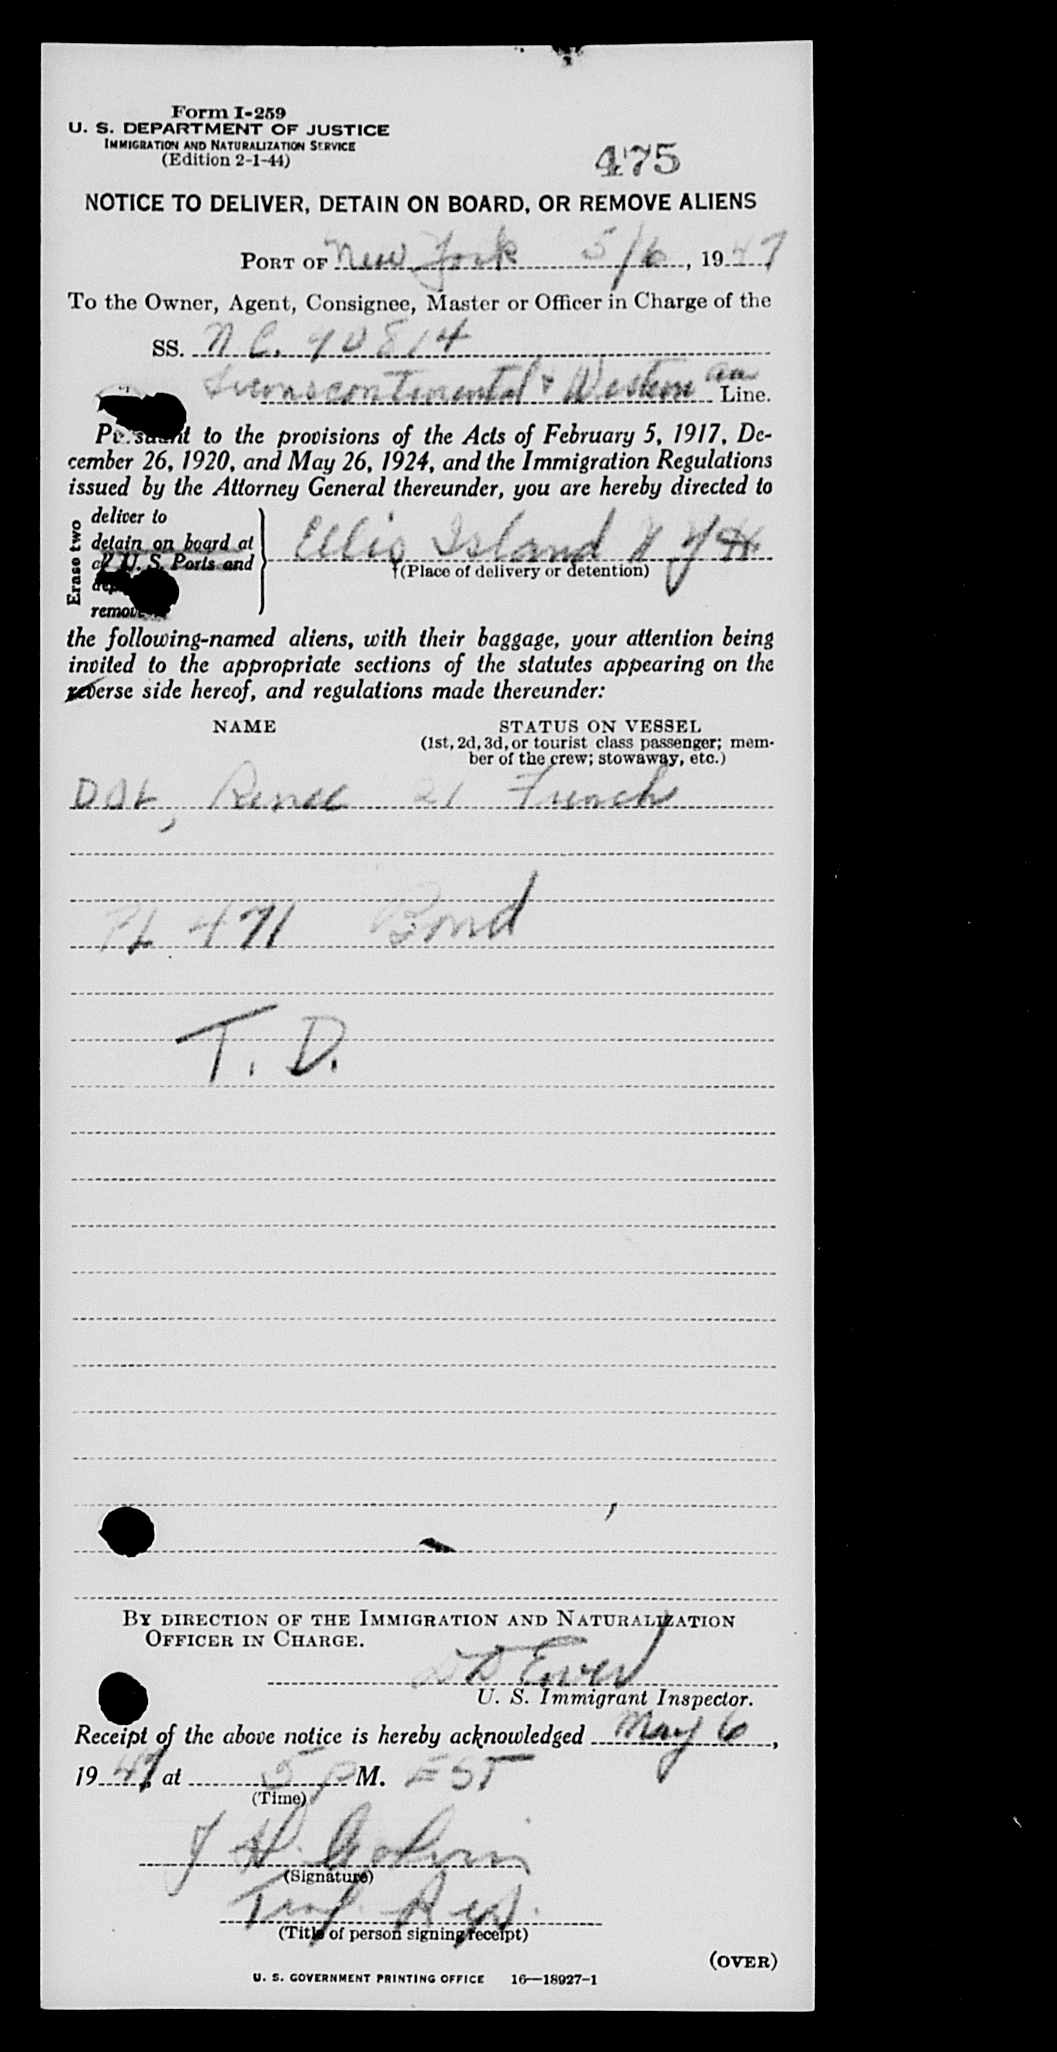 Form I-259
U. S. DEPARTMENT OF JUSTICE
IMMIGRATION AND NATURALIZATION SERVICE
(Edition 2-1-44)
475
NOTICE TO DELIVER, DETAIN ON BOARD, OR REMOVE ALIENS
PORT OF New York 5/6, 1947
To the Owner, Agent, Consignee, Master or Officer in Charge of the
SS. N.C. 90814
Transcontinental & Western Air Line.
Pursuant to the provisions of the Acts of February 5, 1917, De-
cember 26, 1920, and May 26, 1924, and the Immigration Regulations
issued by the Attorney General thereunder, you are hereby directed to
Erase two
deliver to
detain on board at
U. S. Ports and
Ellis Island N Y H
†(Place of delivery or detention)
the following-named aliens, with their baggage, your attention being
invited to the appropriate sections of the statutes appearing on the
reverse side hereof, and regulations made thereunder:
NAME STATUS ON VESSEL
(1st, 2d, 3d, or tourist class passenger; mem-
ber of the crew; stowaway, etc.)
Renee 21 French
471 Bond
T. D.
BY DIRECTION OF THE IMMIGRATION AND NATURALIZATION
OFFICER IN CHARGE.
U. S. Immigrant Inspector.
Receipt of the above notice is hereby acknowledged May 6,
1947, at 5 P M. EST
(Time)
(Signature)
(Title of person signing receipt)
(OVER)
U. S. GOVERNMENT PRINTING OFFICE 16—18927-1